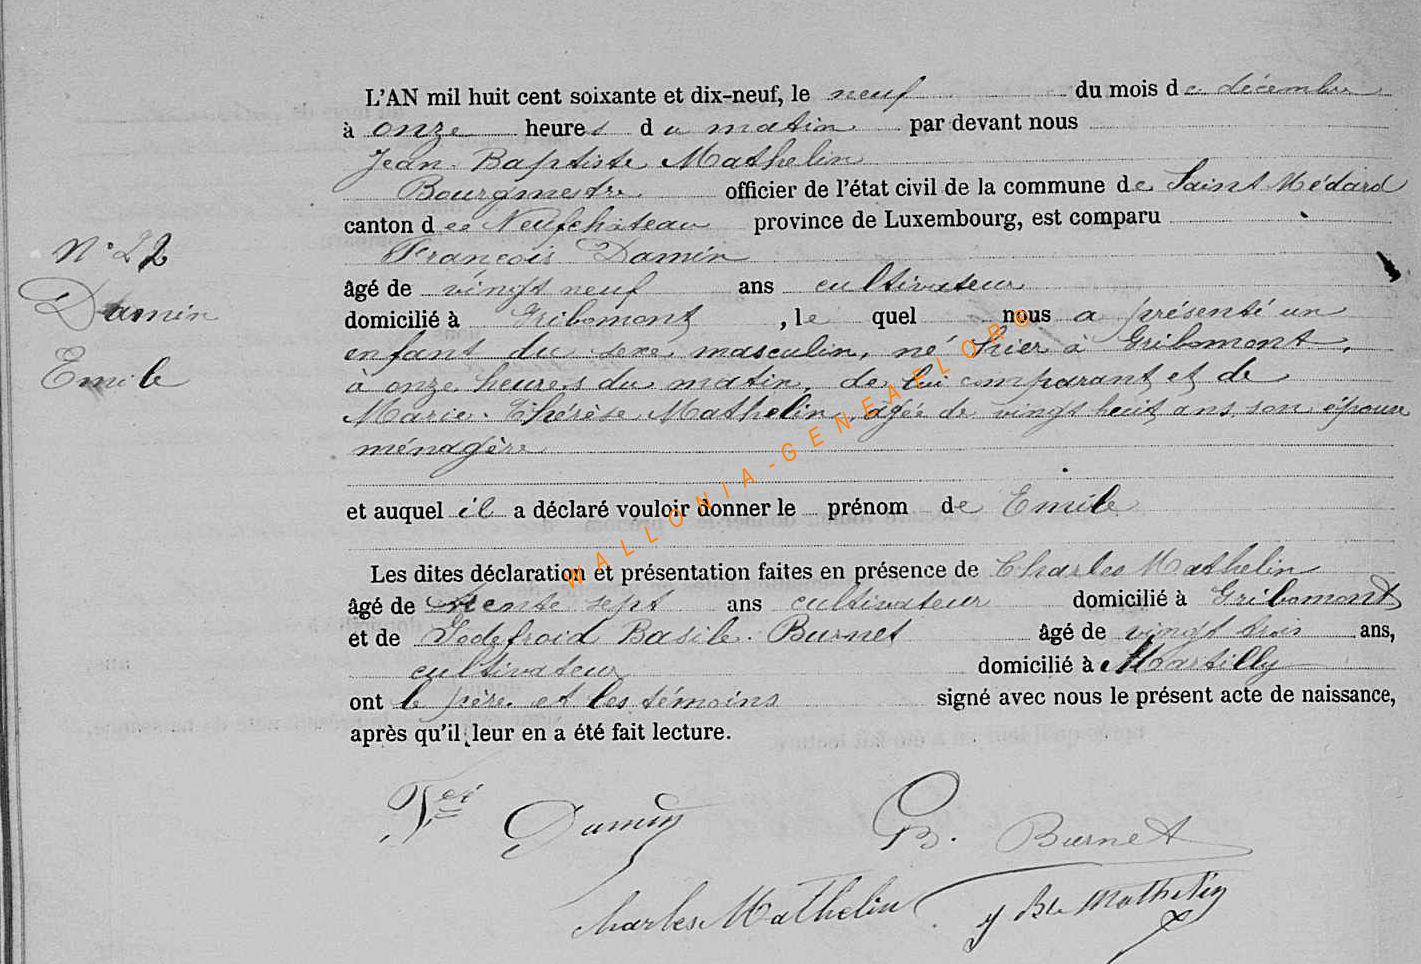 L'AN mil huit cent soixante et dix-neuf, le neuf du mois de décembre
à onze heures du matin par devant nous
Jean Baptiste Mathelin
Bourgmestre officier de l'état civil de la commune de Saint Médard
canton de Neufchâteau province de Luxembourg, est comparu
N° 22
François Damin
Damin
Emile
âgé de vingt neuf ans cultivateur
domicilié à Gribomont, le quel nous a présenté un
enfant du sexe masculin, né hier à Gribomont,
à onze heures du matin, de lui comparant et de
Marie Thérèse Mathelin, agée de vingt huit ans, son épouse
ménagère
et auquel il a déclaré vouloir donner le prénom de Emile
Les dites déclaration et présentation faites en présence de Charles Mathelin
âgé de trente sept ans cultivateur domicilié à Gribomont
et de Godefroid Basile Burnet âgé de vingt trois ans,
cultivateur domicilié à Martilly
ont le père et les témoins signé avec nous le présent acte de naissance,
après qu'il leur en a été fait lecture.
Damin B. Burnet
Charles Mathelin J Bte Mathelin
WALLONIA-GENEAFLORE